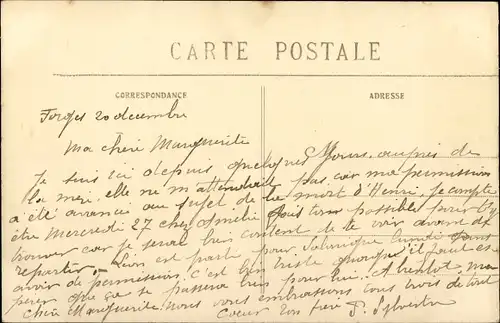 CARTE POSTALE
CORRESPONDANCE
ADRESSE
Forges 20 decembre
Ma chère Marguerite
Je suis ici depuis quelques jours, auprès de
la mère, elle ne m'attendait pas car ma permission
a été avancée au sujet de la mort d'Henri, je compte
être Mercredi 27 chez Amélie tous possible
trouver car je serai bien content de te voir avant de
repartir, Léon est parti pour Salonique Lundi
avoir de permission, c'est bien triste quoiqu'il faut
que ça se passera bien pour lui. A bientôt, ma
chère Marguerite. Nous vous embrassons tous trois de tout
Coeur ton frère P. Sylvestre